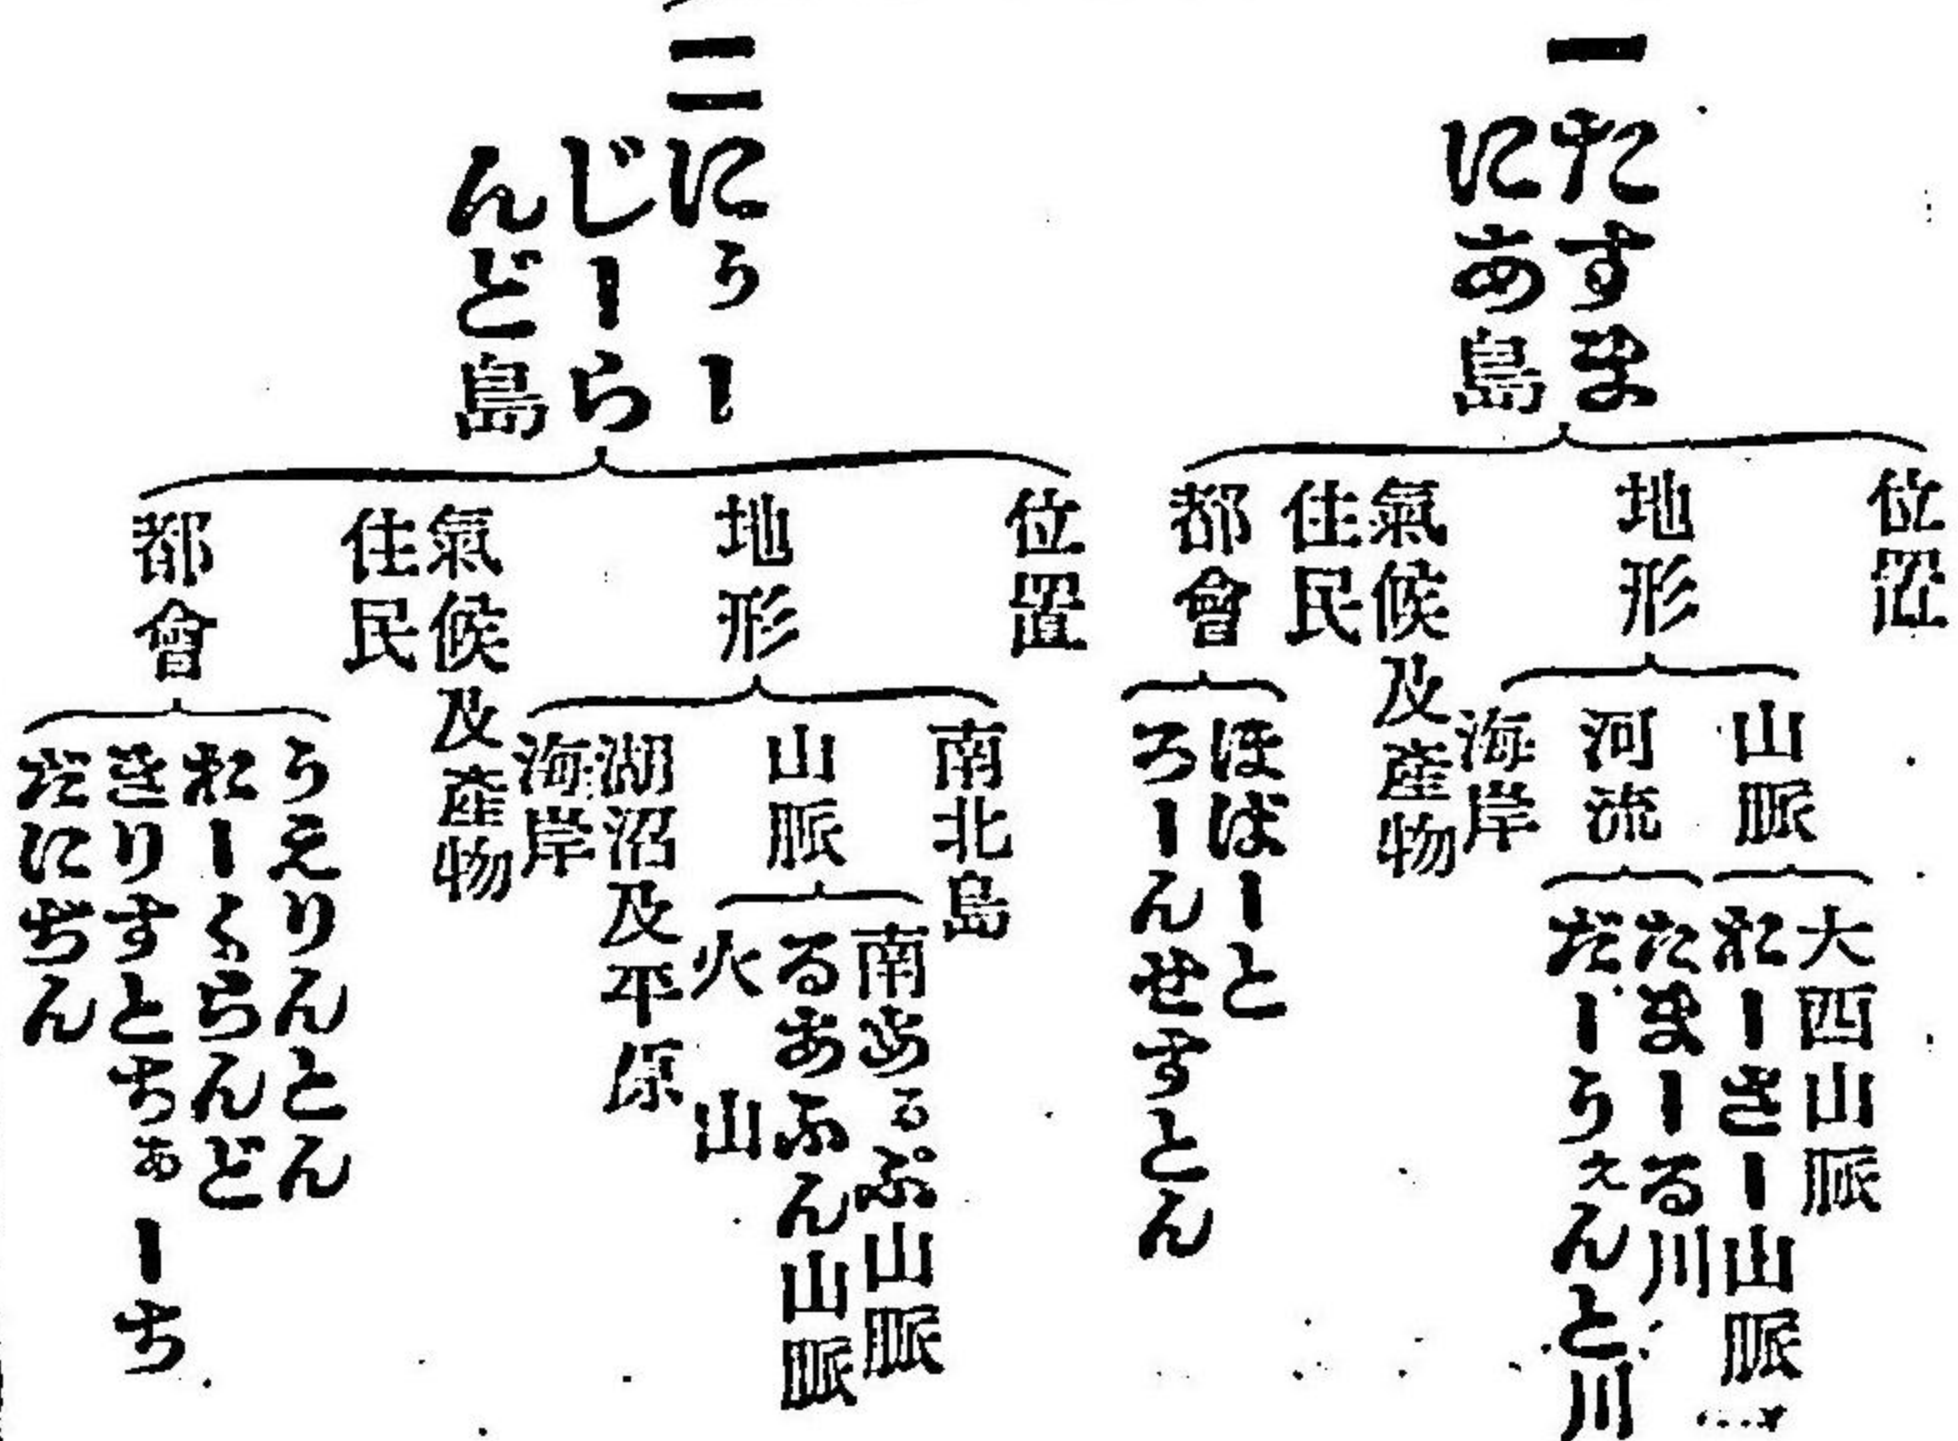 一 たすま
にあ島
位置
地形
山脈
大西山脈
おーさー山脈
河流
たまーる川
だーうぇんと川
海岸
氣候及產物
住民
都會
ほばーと
ろーんせすとん
二 にうー
じーら
んど島
位置
地形
南北島
山脈
南あるぷ山脈
るあふん山脈
火山
湖沼及平原
海岸
氣候及產物
住民
都會
うえりんとん
おーくらんど
きりすとちぁーち
だにぢん